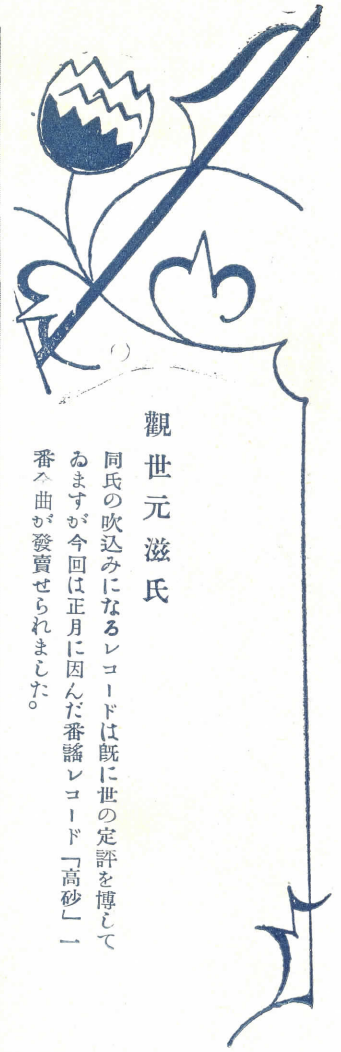 觀世元滋氏
同氏の吹込みになるレコードは既に世の定評を博して
ゐますが今回は正月に因んだ番謠レコード「高砂」一
番全曲が發賣せられました。